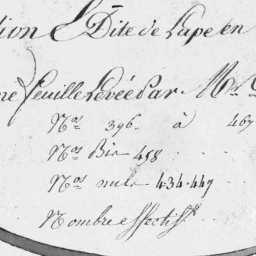 tion Dite de Lape en
ne feuille Levée Par Mrs
Nos 396 à 467
Nos Bis 458
Nos nuls 434.449
Nombre effectif